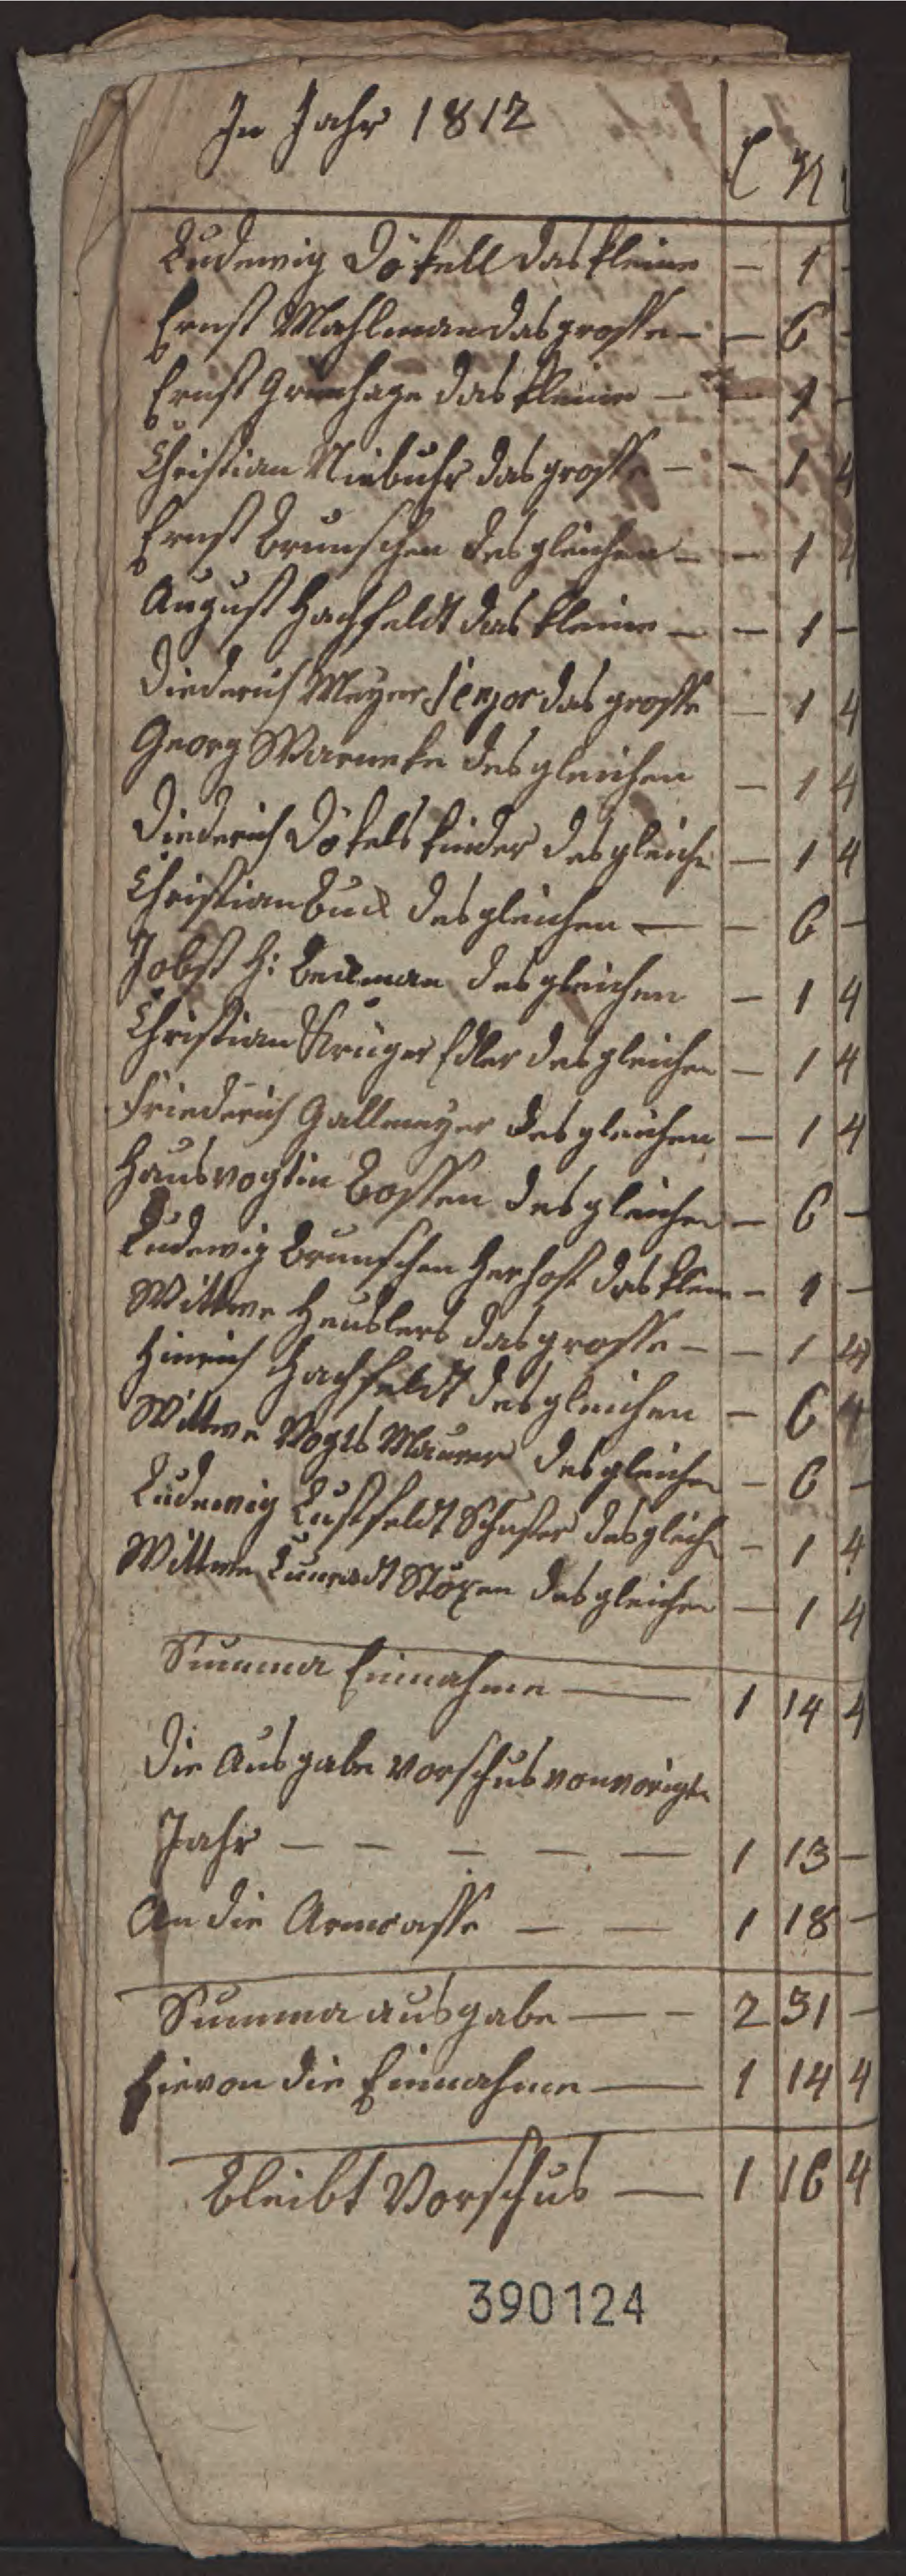 In Jahr 1812
Ludewig Dökell das kleine — 1 —
Ernst Mahlman das grosse — — 6 —
Ernst Grünhage das kleine — — 1 —
Christian Niebuhr das grosse — — 1 4
Ernst Brunschen desgleichen — — 1 4
August Hachfeldt das kleine — — 1 —
Diederich Meyer Senjor das grosse — 1 4
Georg Warneke desgleichen — 1 4
Diederich Dökels kinder desgleiche — 1 4
Christian Buck desgleichen — — 6 —
Jobst H: Beckman desgleichen — 1 4
Christian Krüger Edler desgleichen — 1 4
Friederich Gallmeyer desgleichen — 1 4
Hausvogtin Bossen desgleichen — 6 —
Ludewig Brunschen das kleine — 1 —
Wittwe Heuslers das grosse — — 1 4
Hinrich Hachfeldt desgleichen — 6 4
Wittwe Vogts Maurer desgleichen — 6 —
Ludewig Lustfeldt Schuster desgleich — 1 4
Wittwe Cunradt desgleichen — 1 4
Summa Einnahme — 1 14 4
Die Ausgabe Vorschus von vorigen
Jahr — — — — — 1 13 —
An die Armcasse — — 1 18 —
Summa ausgabe — — 2 31 —
Hievon die Einnahme — 1 14 4
Bleibt Vorschus — 1 16 4
390124